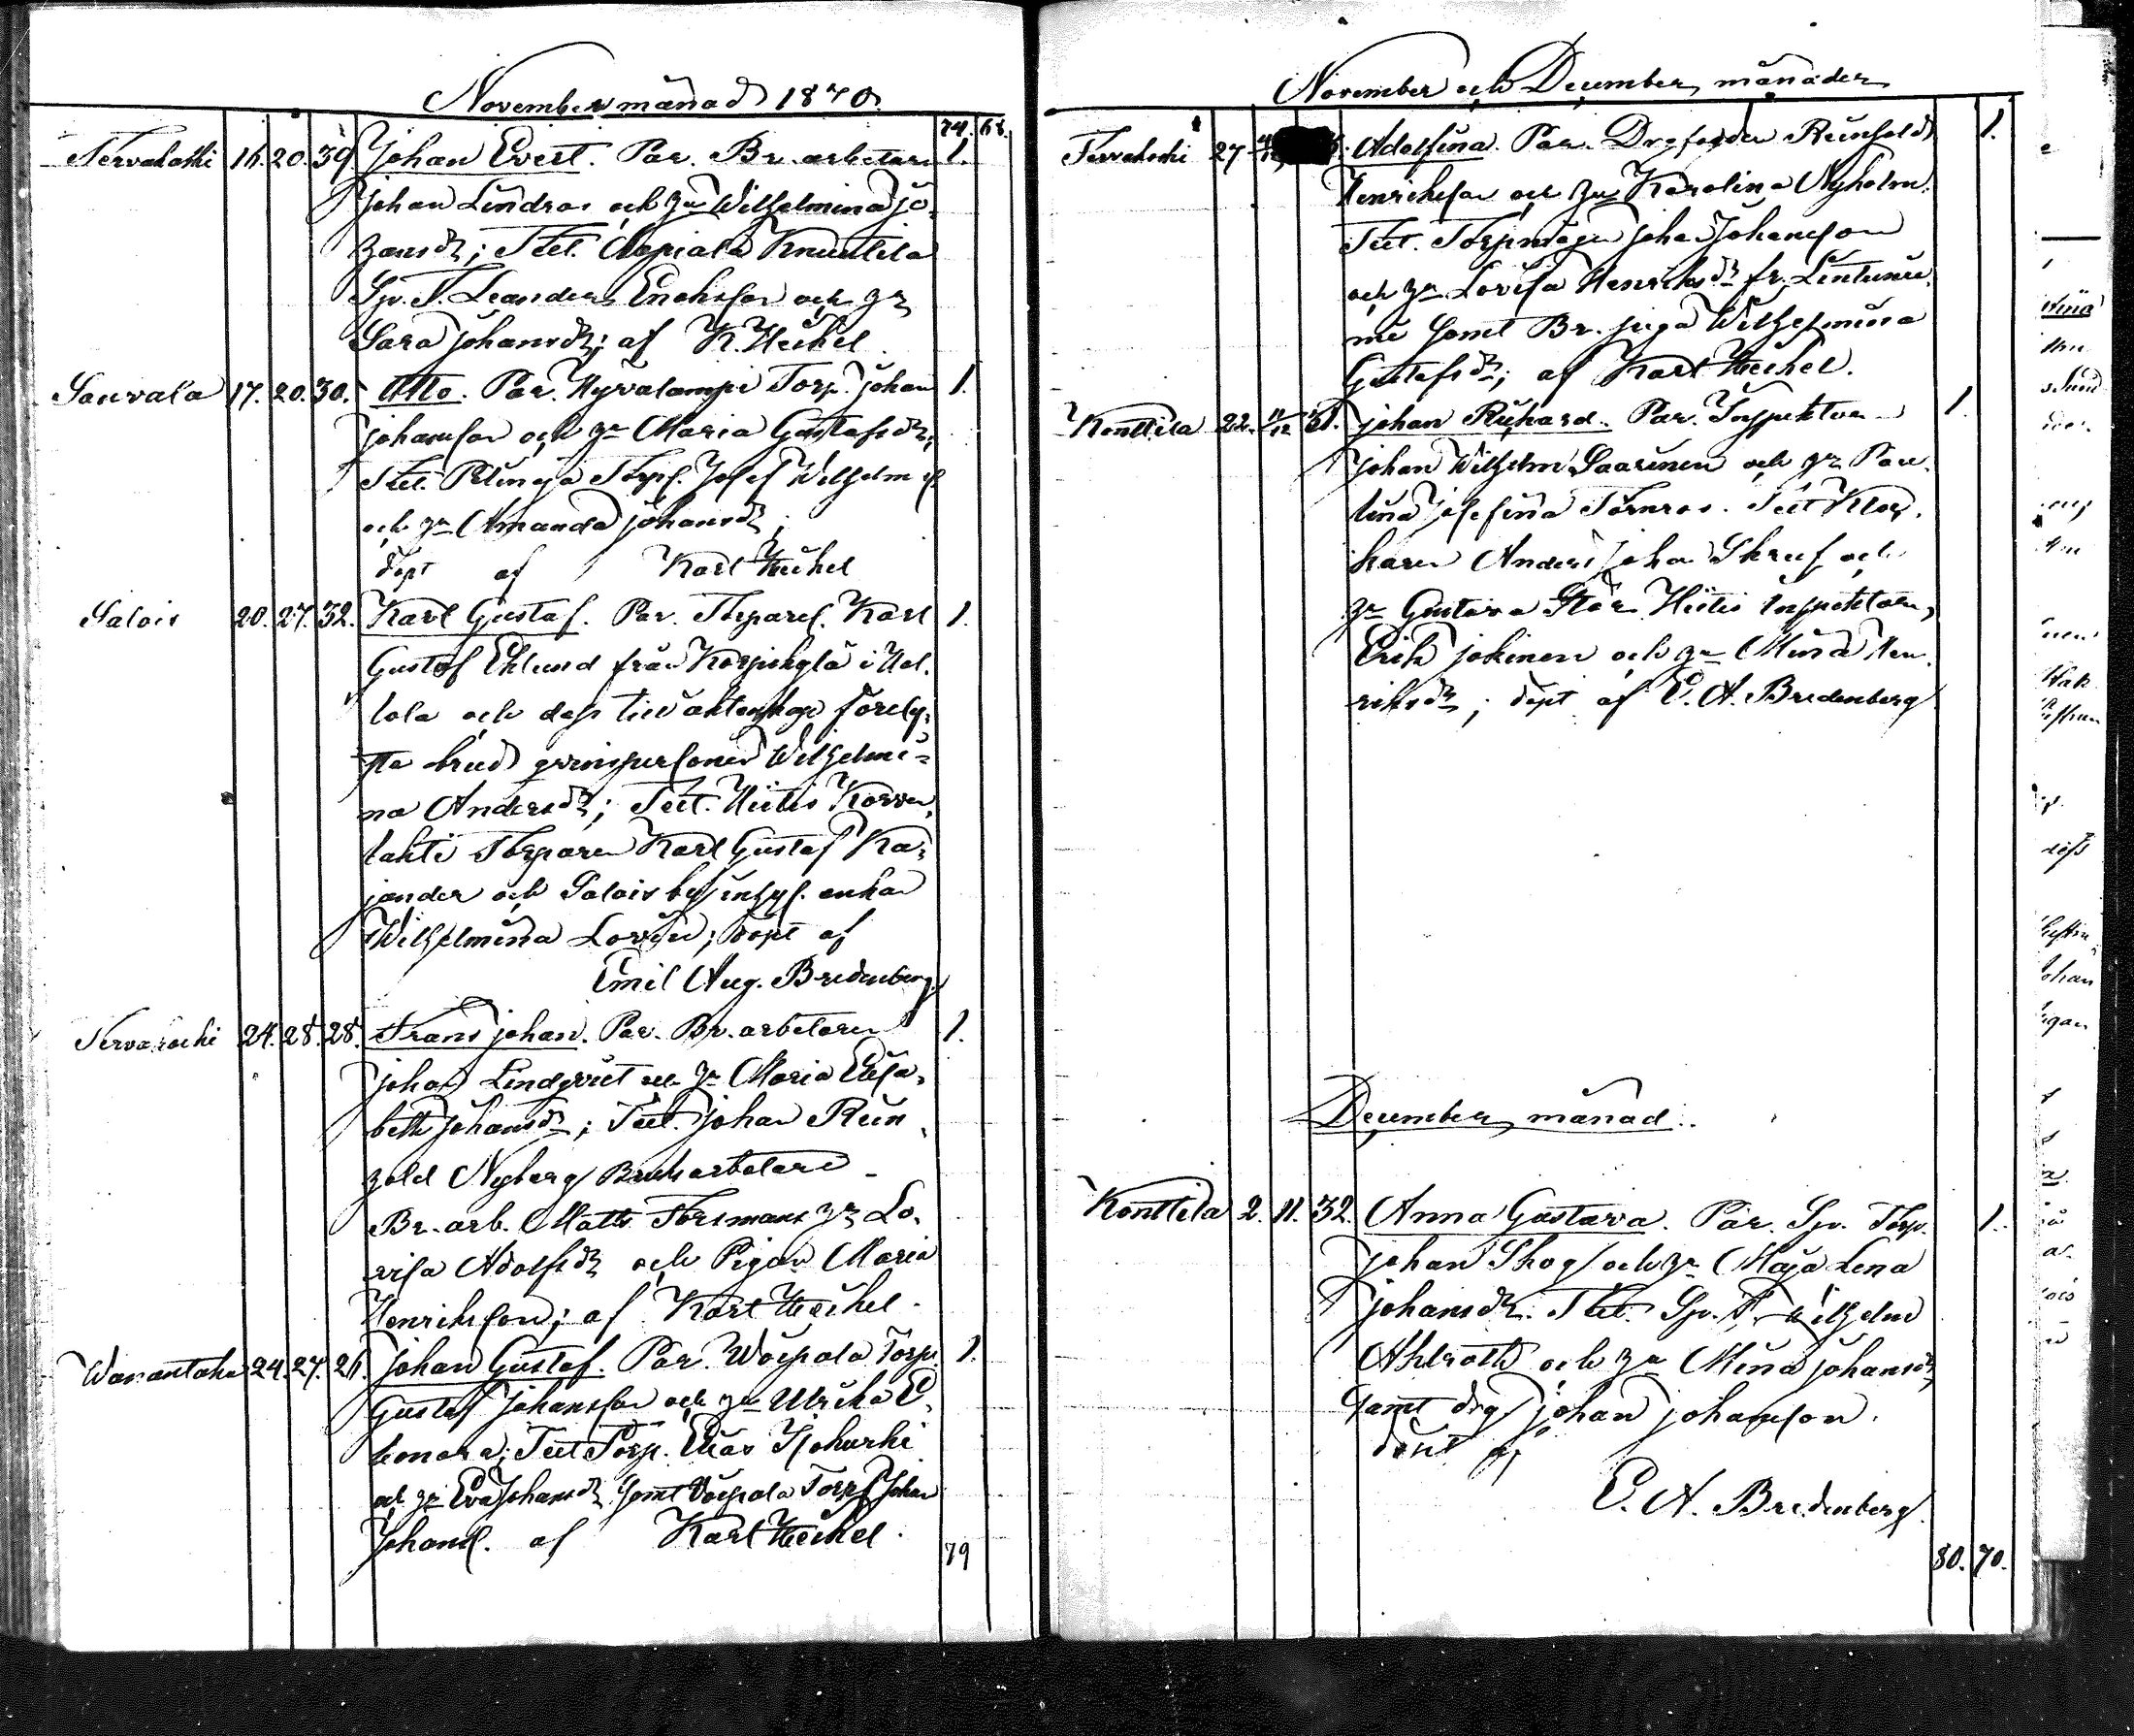 November månad 1870.
74. 68.
Tervakoski 16. 20. 39. Johan Evert. Par. Br. arbetare 1.
Johan Lindros och hu Wilhelmina Jo-
hansdr; Test. Napiala Knuutila
Spv. T. Leander Enokson och hu
Sara Johansdr; af K. Heikel.
Sauvala 17. 20. 30. Otto. Par. Hyvalampi Torp. Johan 1.
Johansson och hu Maria Gustafsdr,
Test. Torpf. Josef Wilhelm
och hu Amanda Johansdr;
döpt af Karl Heikel
Salois 20. 27. 32. Karl Gustaf. Par. Torparef. Karl 1.
Gustaf Eklund från Korpikylä i Hol-
lola och dess till äktenskap förely-
sta brud qvinspersonen Wilhelmi-
na Andersdr; Test. Hiitis Korven-
lahti Torparen Karl Gustaf Ka-
jander och Salois by enkan
Wilhelmina Lovén; döpt af
Emil Aug. Bredenberg.
Tervakoski 24. 28. 28. Frans Johan. Par. Br. arbetaren 1.
Johan Lindqvist och hu Maria Elisa-
beth Johansdr; Test. Johan Rein-
hold Nyberg Bruksarbetare
Br. arb. Matts Forsmans hu Lo-
visa Adolfsdr och Pigan Maria
Henriksson; af Karl Heikel.
Wanantaka 24. 27. 26. Johan Gustaf. Par. Woipala Torp. 1.
Gustaf Johansson och hu Ulrika E-
leonora; Test Torp. Elias
och hu Eva Johansdr samt Voipala Torpf Johan
Johansf. af Karl Heikel.
79
November och December månader
Tervakoski 27. Adolfina. Par. Drgfogden Reinhold 1.
Henriksson och hu Karolina Nyholm.
Test. Johan Johansson
och hu Lovisa Henriksdr fr. Lintumä-
mé samt Br. piga Wilhelmina
Gustafsdr; af Karl Heikel.
Konttila 22. 11/12 31. Johan Rickard. Par. Inspektor 1.
Johan Wilhelm Saarinen och hu Pau-
lina Josefina Törnros. Test Kloc-
karen Anders Johan Skruf och
hu Gustava Stör. Hiitis Inspektoren
Erik Jokinen och hu Mina Hen-
riksdr; döpt af E. A. Bredenberg
December månad.
Konttila 2. 11. 32. Anna Gustava. Par. Spv. Torp. 1.
Johan Skog och hu Maja Lena
Johansdr. Test. Spv. T. Wilhelm
Ahlroth och hu Mina Johansdr,
samt drg Johan Johansson.
döpt af
E. A. Bredenberg
80. 70.